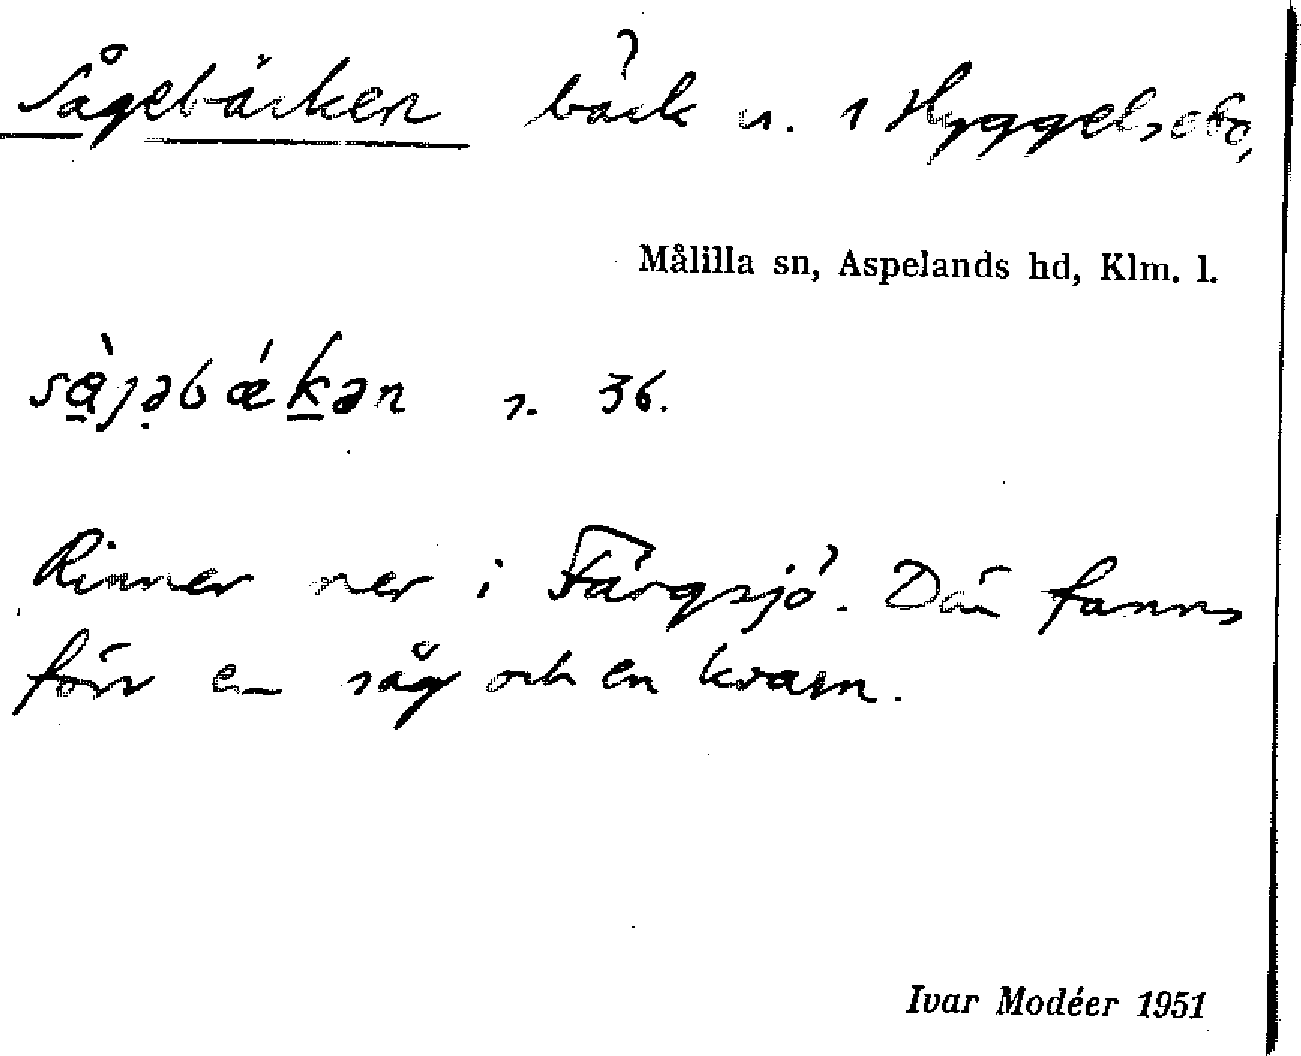 Sågebäcken bäck n. 1 Hyggelsebo,
Målilla sn, Aspelands hd, Klm. l.
s. 36.
Rinner ner i Färgsjö. Där fanns
förr en såg och en kvarn.
Ivar Modéer 1951